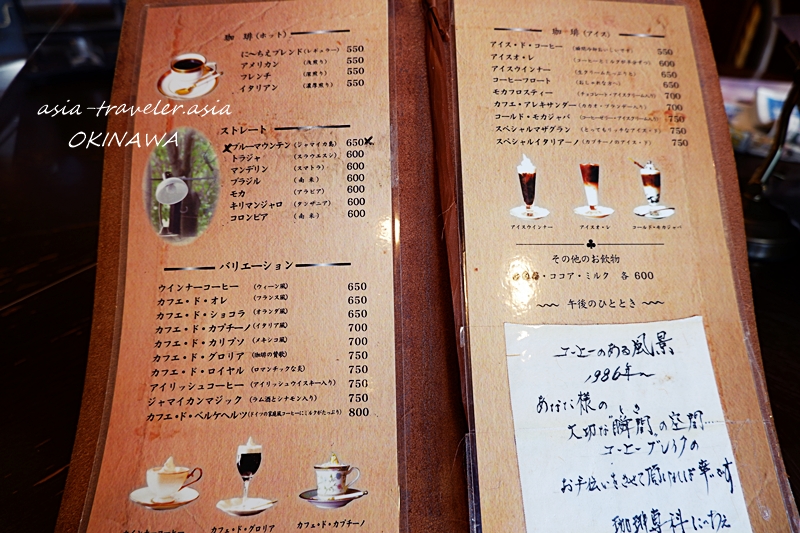 珈琲(ホット)
に〜ちえブレンド(レギュラー) 550
アメリカン (浅煎り) 550
フレンチ (深煎り) 550
イタリアン (濃厚煎り) 550
asia-traveler.asia
OKINAWA
ストレート
ブルーマウンテン(ジャマイカ島) 650
トラジャ (スラウエスシ) 600
マンデリン (スマトラ) 600
ブラジル (南米) 600
モカ (アラビア) 600
キリマンジャロ (タンザニア) 600
コロンビア (南米) 600
バリエーション
ウインナーコーヒー (ウィーン風) 650
カフェ・ド・オレ (フランス風) 650
カフェ・ド・ショコラ (オランダ風) 650
カフェ・ド・カプチーノ(イタリア風) 700
カフェ・ド・カリプソ (メキシコ風) 700
カフェ・ド・グロリア (珈琲の賛歌) 750
カフェ・ド・ロイヤル (ロマンチックな炎) 750
アイリッシュコーヒー (アイリッシュウイスキー入り) 750
ジャマイカンマジック (ラム酒とシナモン入り) 750
カフェ・ド・ベルケヘルツ(ドイツの家庭風コーヒーにミルクがたっぷり) 800
ウインナーコーヒー
カフェ・ド・グロリア
カフェ・ド・カプチーノ
珈琲(アイス)
アイス・ド・コーヒー 550
アイスオ・レ 600
アイスウインナー (生クリームたっぷり) 650
コーヒーフロート (おしゃれなあ) 650
モカフロスティー (チョコレート・アイスクリーム入り) 700
カフェ・アレキサンダー (カカオ・ブランデー入り) 700
コールド・モカジャバ (コーヒーゼリー・アイスクリーム入り) 750
スペシャルマザグラン (とってもリッチなアイス・ド) 750
スペシャルイタリアーノ (カプチーノのアイス・ド) 750
アイスウインナー
アイスオ・レ
コールド・モカジャバ
その他のお飲物
・ココア・ミルク 各 600
午後のひととき
コーヒーのある風景
1986年〜
あなた様の
大切な"瞬間"の空間……
とき
コーヒーブレイクの
お手伝いをさせて頂ければ幸いです
珈琲専科 に〜ちえ